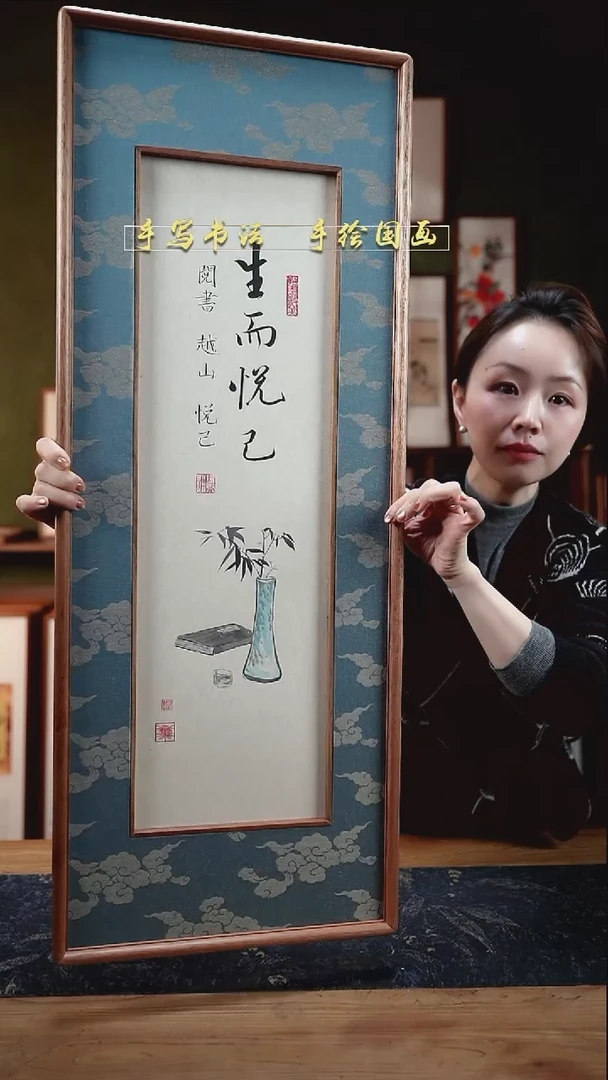 手写书法 手绘国画
生而悦己
閲書 越山 悦己